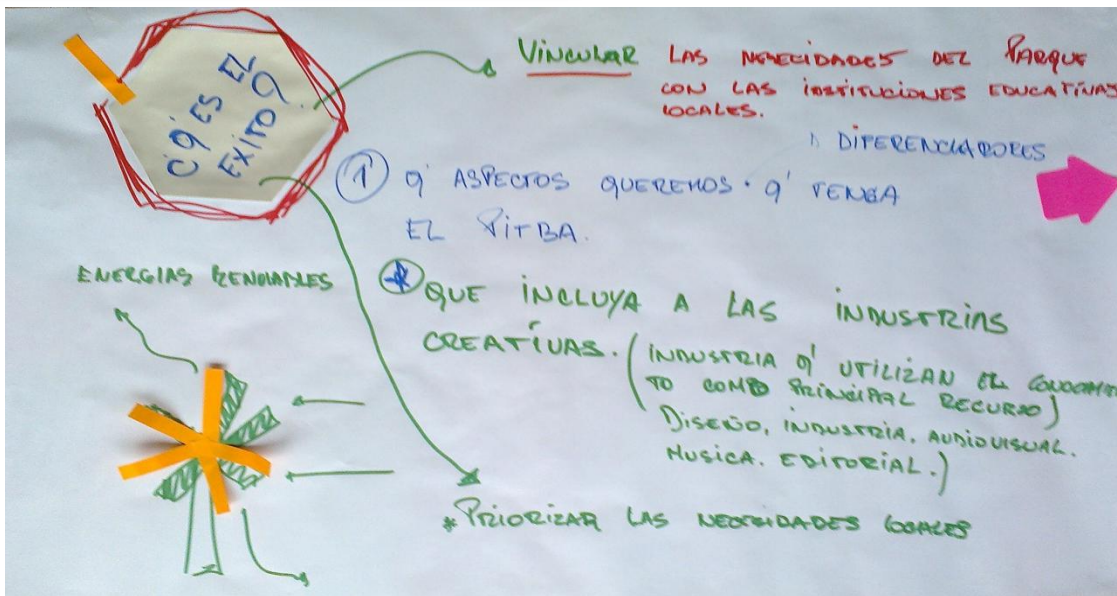 ¿Q' ES EL
EXITO?
VINCULAR LAS NECECIDADES DEL PARQUE
CON LAS INSTITUCIONES EDUCATIVAS
LOCALES.
DIFERENCIADORES
① Q' ASPECTOS QUEREMOS Q' TENGA
EL PITBA.
ENERGIAS RENOVABLES
* QUE INCLUYA A LAS INDUSTRIAS
CREATIVAS. (INDUSTRIA Q' UTILIZAN EL CONOCIMIEN
TO COMO PRINCIPAL RECURSO)
DISEÑO, INDUSTRIA, AUDIOVISUAL.
MUSICA. EDITORIAL.)
* PRIORIZAR LAS NECESIDADES LOCALES